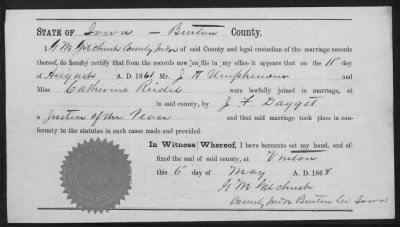 STATE OF Iowa — Benton County.
I, G M Gilchrist County Judge of said County and legal custodian of the marriage records
thereof, do hereby certify that from the records now on file in my office it appears that on the 11th day
of August A. D. 1861 Mr. J H Umphenour
Miss Catherine were lawfully joined in marriage, at
in said county, by J. F. Dagget
a Justice of the Peace and that said marriage took place in con-
formity to the statutes in such cases made and provided.
In Witness Whereof, I have hereunto set my hand, and af-
fixed the seal of said county, at Vinton
this 6th day of May A. D. 1868
G M Gilchrist
County Judge Benton Co Iowa